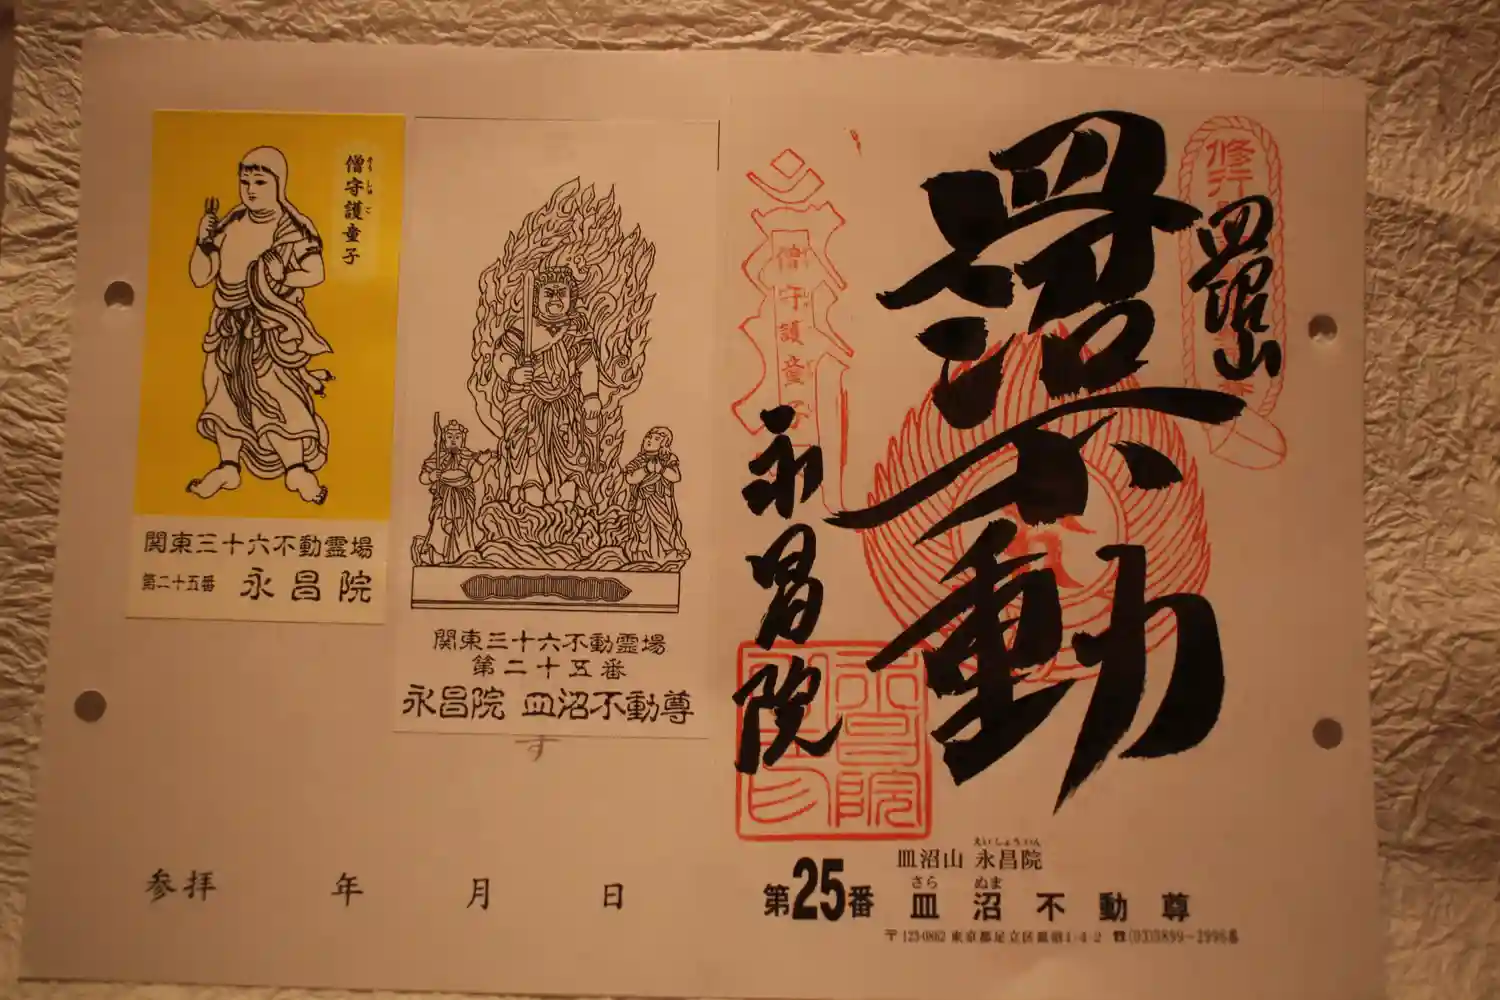 僧守護童子
そうしゅご
関東三十六不動霊場
第二十五番 永昌院
関東三十六不動霊場
第二十五番
永昌院 皿沼不動尊
す
参拝 年 月 日
皿沼山
皿沼不動
永昌院
僧守護童子
修行
永昌院
えいしょういん
皿沼山 永昌院
さら ぬま
第25番 皿沼不動尊
〒123-0862 東京都足立区皿沼1-4-2 ☎(03)3899-2996番